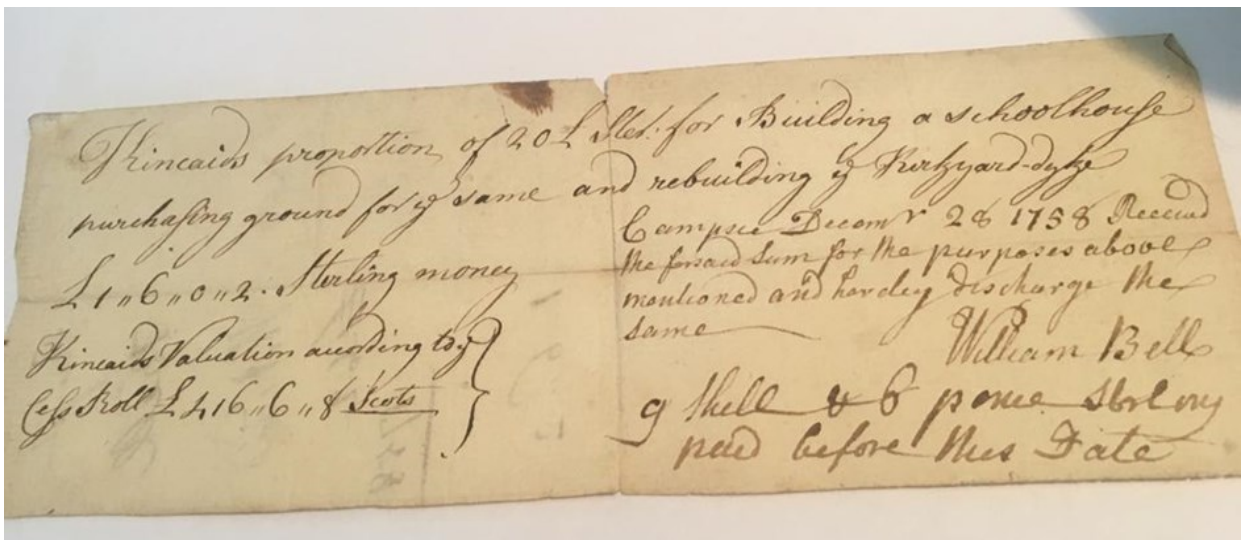 Kincaids proportion of 20 £ Ster: for Building a schoolhouse
purchasing ground for ye same and rebuilding ye Kirkyard-dyke
£ 1 〃 6 〃 0 〃 2 . Sterling money
Kincaids Valuation acording to ye
Cess Roll £ 416 〃 6 〃 8 Scots
Campsie Decemr 28 1758 Received
the forsaid sum for the purposes above
mentioned and hereby discharge the
same
William Bell
9 Shell & 6 pence Sterling
paid before this Date